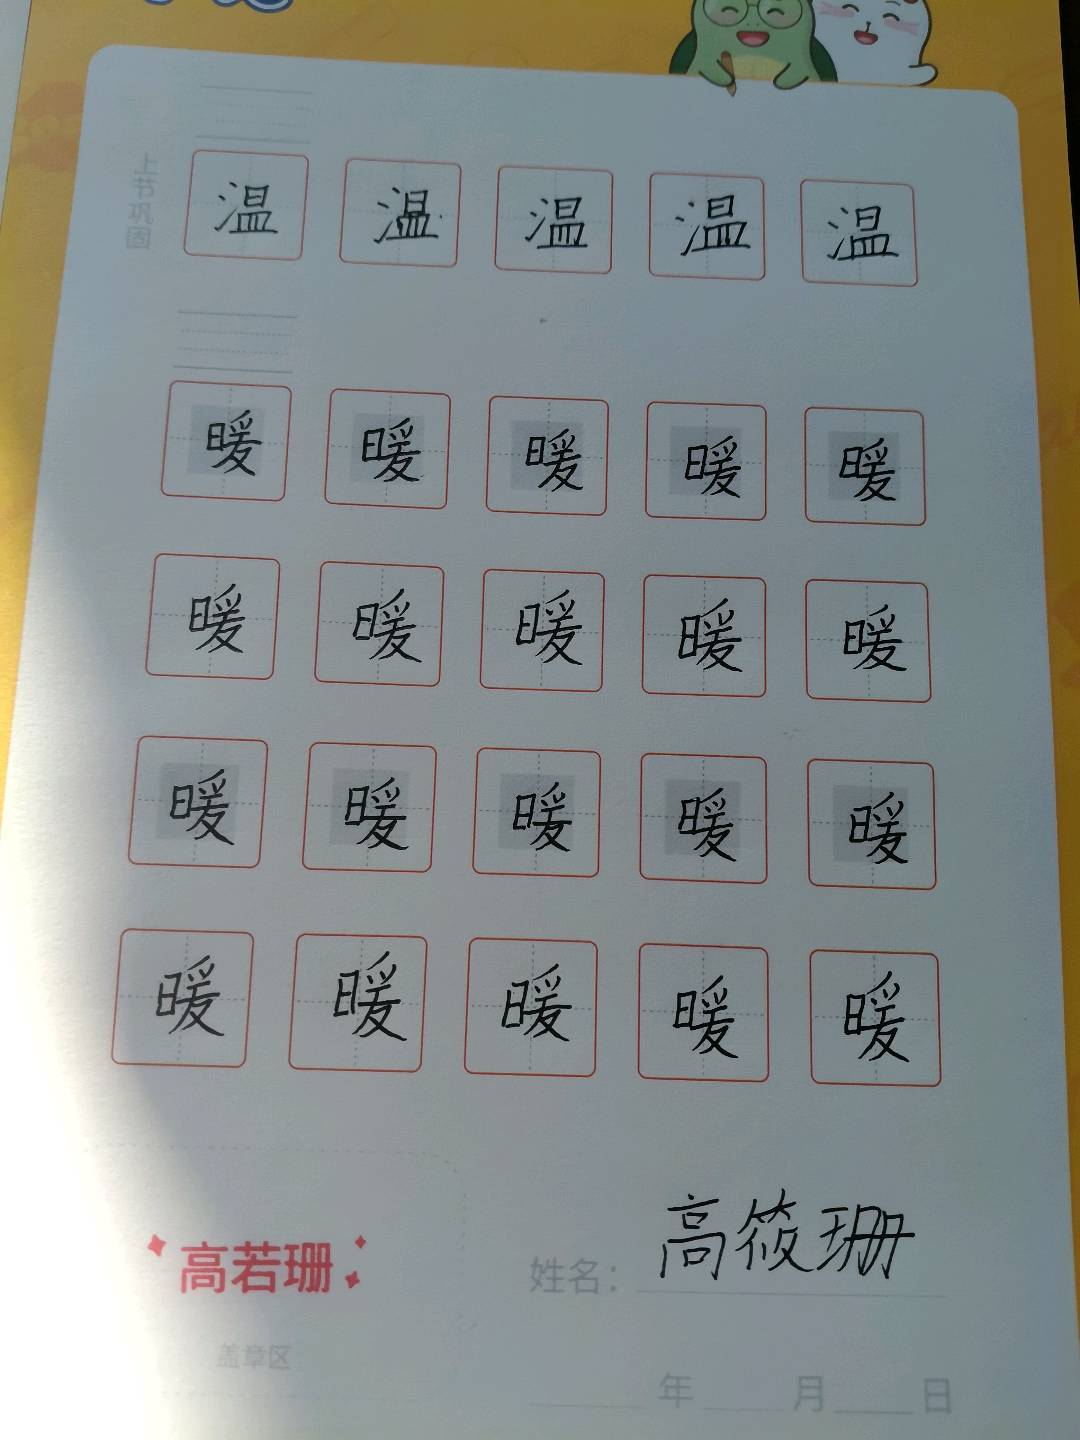 上书巩固
温 温 温 温 温
暖 暖 暖 暖 暖
暖 暖 暖 暖 暖
暖 暖 暖 暖 暖
暖 暖 暖 暖 暖
高若珊
姓名：高筱珊
盖章区
年 月 日